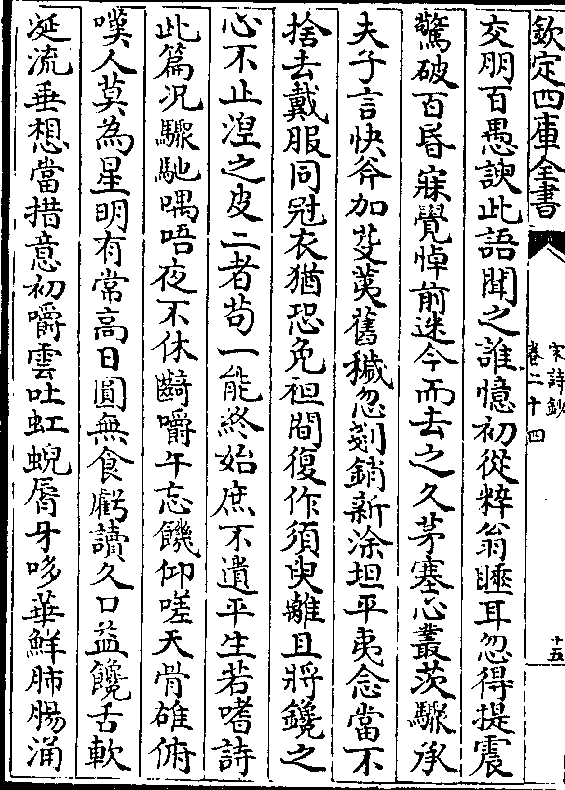 欽定四庫全書
宋詩鈔
卷二十四
十五
交朋百愚諛此語聞之誰憶初從粹翁睡耳忽得提震
驚破百昏寐覺悼前迷今而去之久茅塞心叢茨驟承
夫子言快斧加芟荑舊穢忽剗銷新涂坦平夷念當不
捨去戴服同冠衣猶恐免袒間復作須臾離且將鑱之
心不止湼之皮二者苟一能終始庶不遺平生若嗜詩
此篇况驟馳喁唔夜不休齮嚼午忘饑仰嗟天骨碓俯
嘆人莫為星明有常高日圓無食虧讀久口益饞舌軟
涎流垂想當措意初嚼雲吐虹蜺唇牙哆華鮮肺腸涌